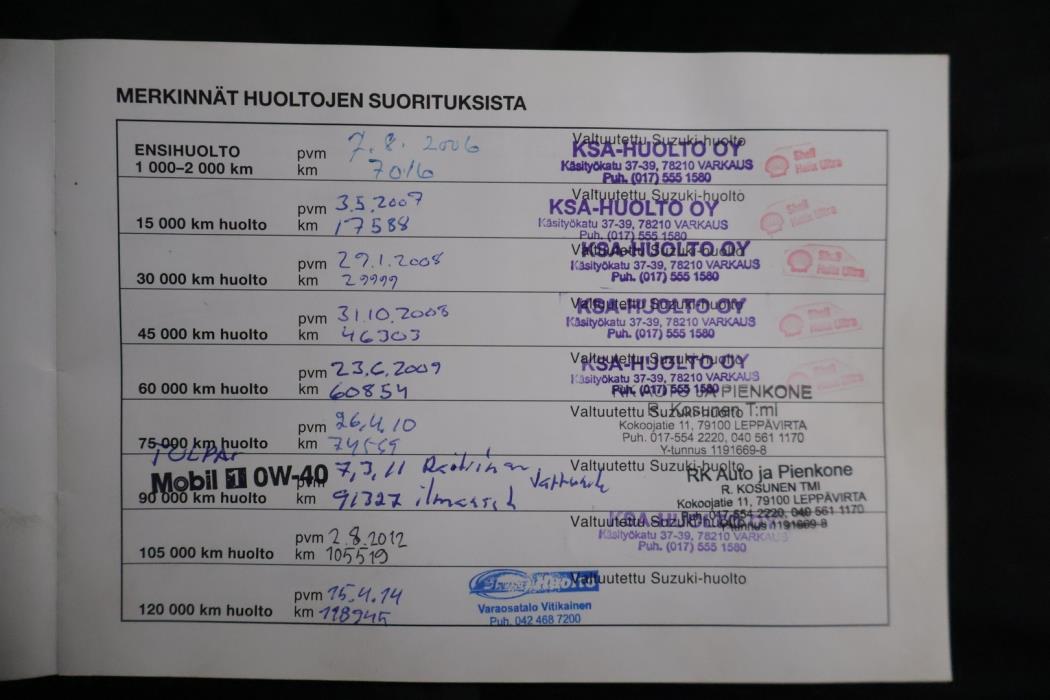 MERKINNÄT HUOLTOJEN SUORITUKSISTA
ENSIHUOLTO
1 000–2 000 km
pvm 7.8.2006
km 7016
Valtuutettu Suzuki-huolto
KSA-HUOLTO OY
Käsityökatu 37-39, 78210 VARKAUS
Puh. (017) 555 1580
Shell
Helix Ultra
15 000 km huolto
pvm 3.5.2007
km 17588
Valtuutettu Suzuki-huolto
KSA-HUOLTO OY
Käsityökatu 37-39, 78210 VARKAUS
Puh. (017) 555 1580
Shell
Helix Ultra
30 000 km huolto
pvm 29.1.2008
km 29999
Valtuutettu Suzuki-huolto
KSA-HUOLTO OY
Käsityökatu 37-39, 78210 VARKAUS
Puh. (017) 555 1580
Shell
Helix Ultra
45 000 km huolto
pvm 31.10.2008
km 46303
Valtuutettu Suzuki-huolto
KSA-HUOLTO OY
Käsityökatu 37-39, 78210 VARKAUS
Puh. (017) 555 1580
Shell
Helix Ultra
60 000 km huolto
pvm 23.6.2009
km 60854
Valtuutettu Suzuki-huolto
KSA-HUOLTO OY
Käsityökatu 37-39, 78210 VARKAUS
Puh. (017) 555 1580
75 000 km huolto
pvm 26.4.10
km
RK AUTO JA PIENKONE
Valtuutettu Suzuki-huolto
R. Kosunen T:mi
Kokoojatie 11, 79100 LEPPÄVIRTA
Puh. 017-554 2220, 040 561 1170
Y-tunnus 1191669-8
Mobil 1 0W-40
90 000 km huolto
pvm 7.3.11
km 91327
Valtuutettu Suzuki-huolto
RK Auto ja Pienkone
R. KOSUNEN TMI
Kokoojatie 11, 79100 LEPPÄVIRTA
Puh. 017-554 2220, 040 561 1170
Y-tunnus 1191669-8
105 000 km huolto
pvm 2.8.2012
km 105519
KSA-HUOLTO OY
Valtuutettu Suzuki-huolto
Käsityökatu 37-39, 78210 VARKAUS
Puh. (017) 555 1580
120 000 km huolto
pvm 15.4.14
km 118945
Valtuutettu Suzuki-huolto
Huolto
Varaosatalo Vitikainen
Puh. 042 468 7200